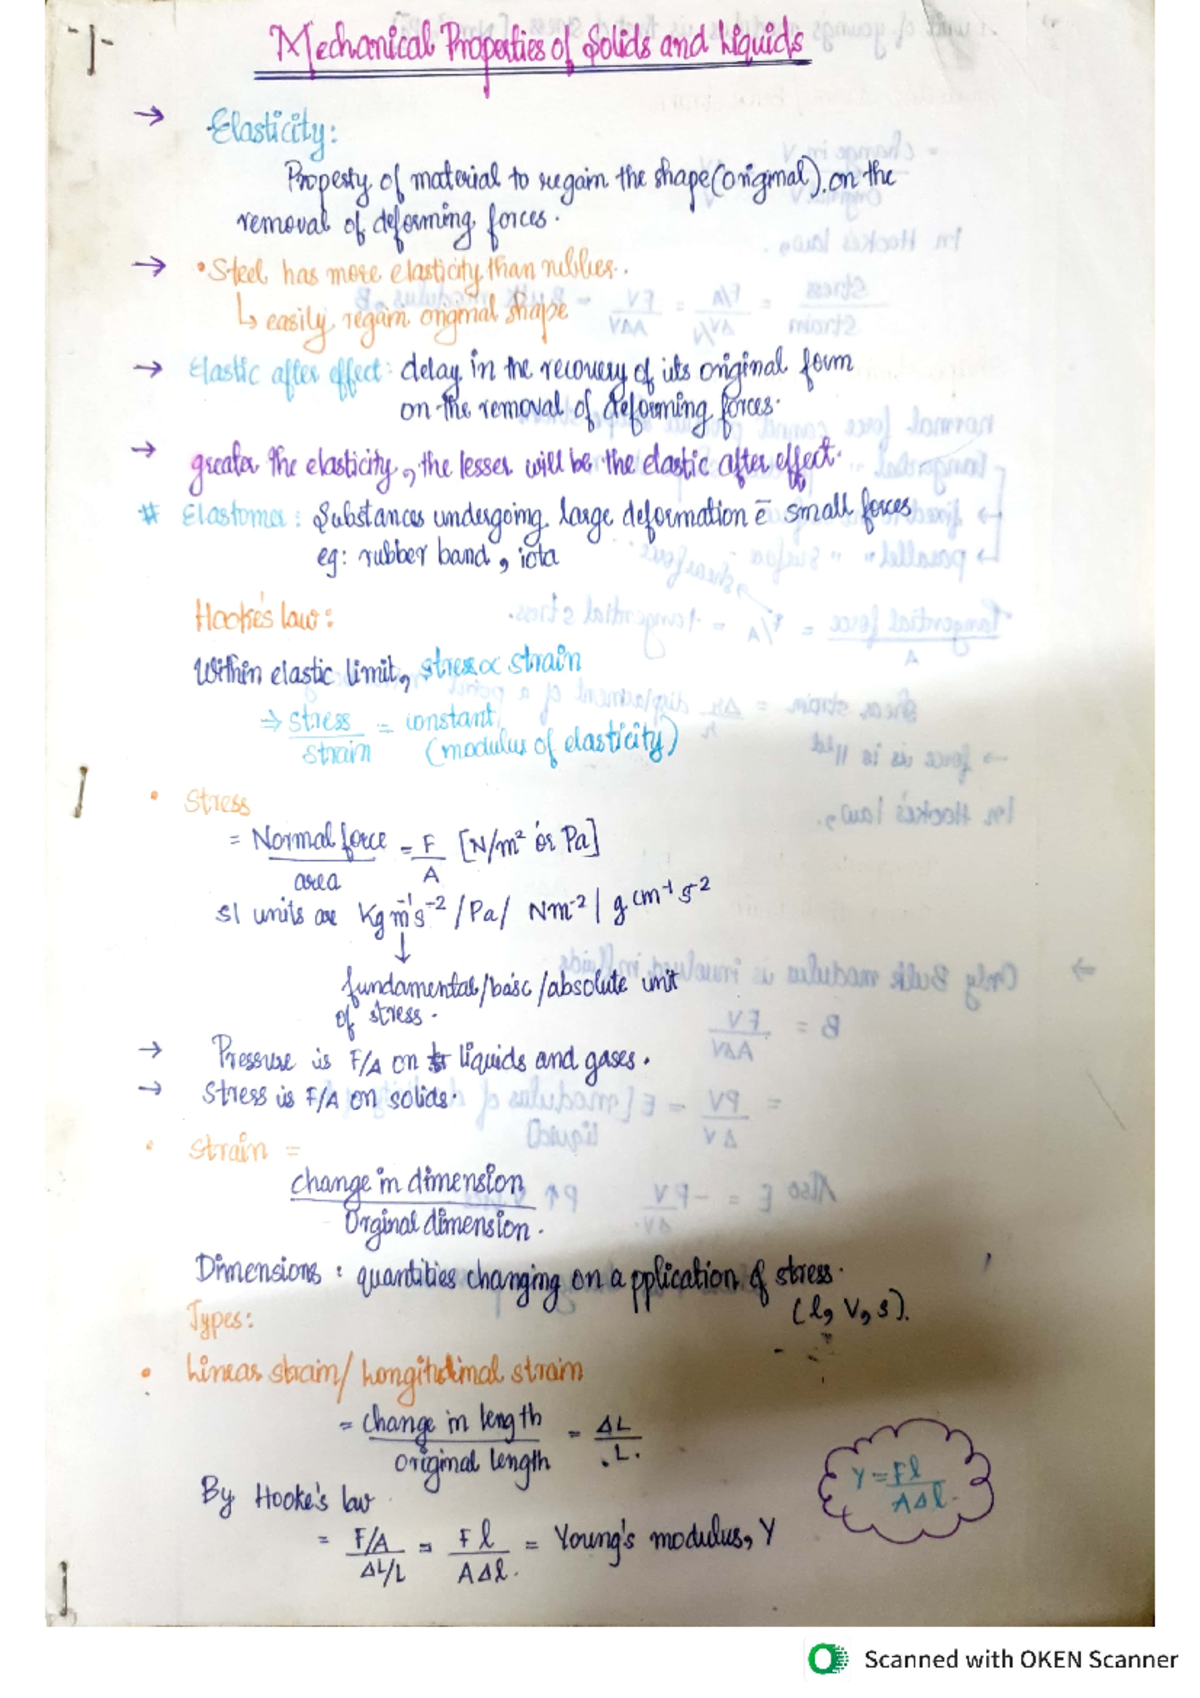 -1-
Mechanical Properties of Solids and Liquids
→ Elasticity:
Property of material to regain the shape(original). on the
removal of deforming forces.
→ • Steel has more elasticity than rubber.
↳ easily regain original shape
→ Elastic after effect: delay in the recovery of its original form
on the removal of deforming forces.
→ greater the elasticity, the lesser will be the elastic after effect.
# Elastomer: Substances undergoing large deformation c̄ small forces
eg: rubber band,
Hooke's law:
Within elastic limit, stress ∝ strain
⇒ stress/strain = constant (modulus of elasticity)
• Stress
= Normal force/area = F/A [N/m² or Pa]
SI units are Kg m⁻¹s⁻² / Pa / Nm⁻² / g cm⁻¹ s⁻²
↓
fundamental/basc/absolute unit
of stress.
→ Pressure is F/A on liquids and gases.
→ Stress is F/A on solids.
• Strain =
change in dimension
Orginal dimension.
Dimensions : quantities changing on application of stress.
(l, v, s).
Types:
• Linear strain/ Longitudinal strain
= change in length/original length = ΔL/L.
Y = Fl/AΔl.
By Hooke's law
= F/A/ΔL/L = Fl/AΔl. = Young's modulus, Y
Scanned with OKEN Scanner